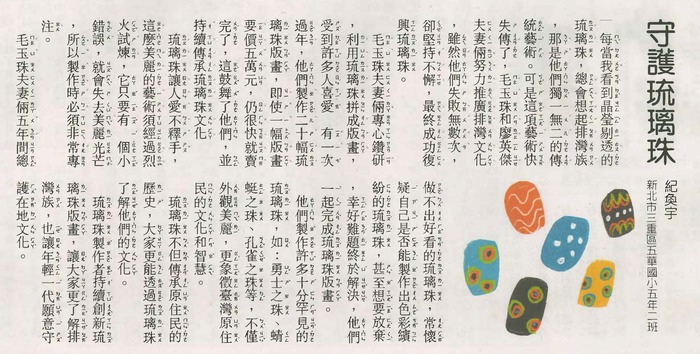 守護琉璃珠
紀奐宇
新北市三重區五華國小五年二班
每當我看到晶瑩剔透的
琉璃珠，總會想起排灣族
，那是他們獨一無二的傳
統藝術。可是這項藝術快
失傳了，毛玉珠和廖英傑
夫妻倆努力推廣排灣文化
，雖然他們失敗無數次，
卻堅持不懈，最終成功復
興琉璃珠。
毛玉珠夫妻倆專心鑽研
，利用琉璃珠拼成版畫，
受到許多人喜愛 有一次
過年，他們製作二十幅琉
璃珠版畫，即使一幅版畫
要價五萬元，仍很快就賣
完了，這鼓舞了他們，並
持續傳承琉璃珠文化
琉璃珠讓人愛不釋手，
這麼美麗的藝術須經過烈
火試煉，它只要有一個小
錯誤，就會失去美麗光芒
，所以製作時必須非常專
注。
毛玉珠夫妻倆五年間總
做不出好看的琉璃珠，常懷
疑自己是否能製作出色彩繽
紛的琉璃珠，甚至想要放棄
，幸好難題終於解決，他們
一起完成琉璃珠版畫。
他們製作許多十分罕見的
琉璃珠，如：勇士之珠、蜻
蜓之珠、孔雀之珠等，不僅
外觀美麗，更象徵臺灣原住
民的文化和智慧。
琉璃珠不但傳承原住民的
歷史，大家更能透過琉璃珠
了解他們的文化。
琉璃珠製作者持續創新琉
璃珠版畫，讓大家更了解排
灣族，也讓年輕一代願意守
護在地文化。